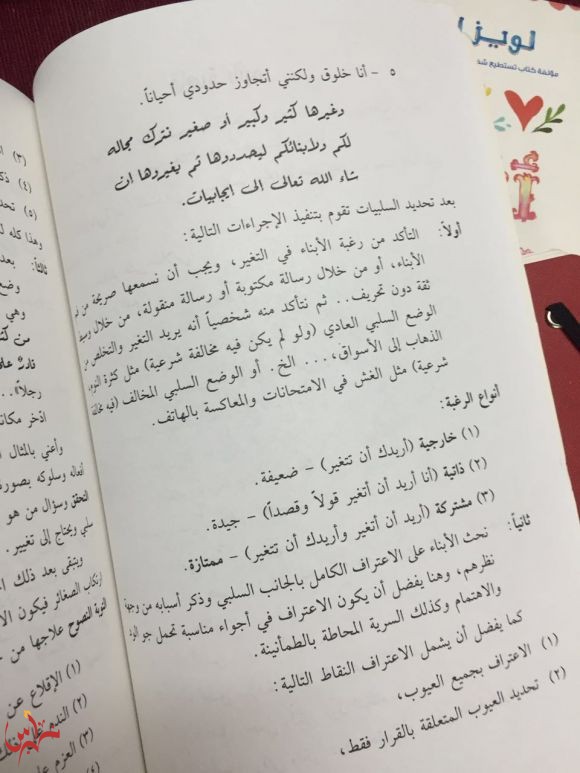 ٥ - أنا خلوق ولكنني أتجاوز حدودي أحياناً.
وغيرها كثير وكبير أو صغير نترك مجاله
لكم ولأبنائكم ليحددوها ثم يغيروها ان
شاء الله تعالى الى ايجابيات.
بعد تحديد السلبيات تقوم بتنفيذ الإجراءات التالية:
أولاً: التأكد من رغبة الأبناء في التغير، ويجب أن نسمعها صريحة من
الأبناء، أو من خلال رسالة مكتوبة أو رسالة منقولة، من خلال
ثقة دون تحريف.. ثم نتأكد منه شخصياً أنه يريد التغير والتخلص من
الوضع السلبي العادي (ولو لم يكن فيه مخالفة شرعية) مثل كثرة
الذهاب إلى الأسواق، ... الخ. أو الوضع السلبي المخالف (فيه مخالفة
شرعية) مثل الغش في الامتحانات والمعاكسة بالهاتف.
أنواع الرغبة:
(١) خارجية (أريدك أن تتغير) - ضعيفة.
(٢) ذاتية (أنا أريد أن أتغير قولاً وقصداً) - جيدة.
(٣) مشتركة (أريد أن أتغير وأريدك أن تتغير) - ممتازة.
ثانياً: نحث الأبناء على الاعتراف الكامل بالجانب السلبي وذكر أسبابه من وجهة
نظرهم، وهنا يفضل أن يكون الاعتراف في أجواء مناسبة تحمل جو
والاهتمام وكذلك السرية المحاطة بالطمأنينة.
كما يفضل أن يشمل الاعتراف النقاط التالية:
(١) الاعتراف بجميع العيوب،
(٢) تحديد العيوب المتعلقة بالقرار فقط،
لويز
مؤلفة كتاب تستطيع
(٣)
(٤)
(٥)
وهذا كله
ثالثاً:
وضع
وهي
من
رجلاً»..
اذخر
وأعني بالمثال
أفعاله وسلوكه بصورة
التحقق وسؤال من هو
سلبي ويحتاج إلى تغيير.
ويتبقى بعد ذلك
ارتكاب الصغائر فيكون
التوبة النصوح علاجها من
(١) الإقلاع عن
(٢) الندم
(٣) العزم
(٤)